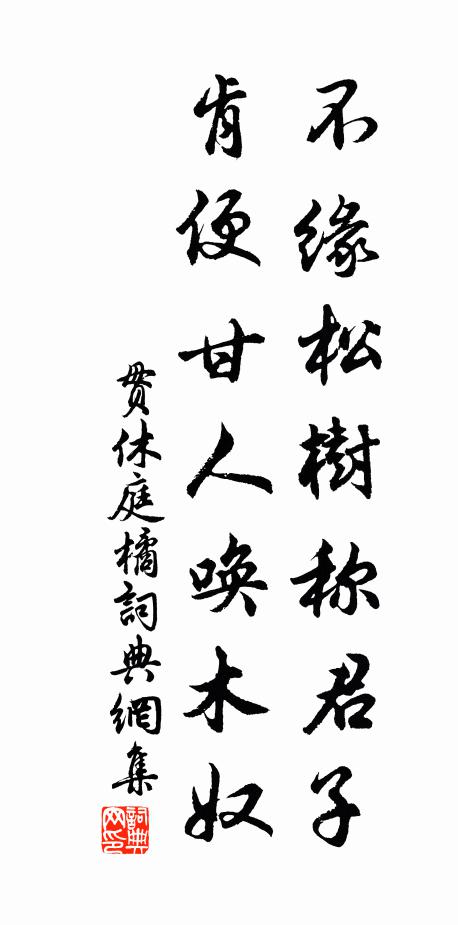 不缘松樹称君子
肯便甘人唤木奴
贯休庭橘詞典網集
詞典网印